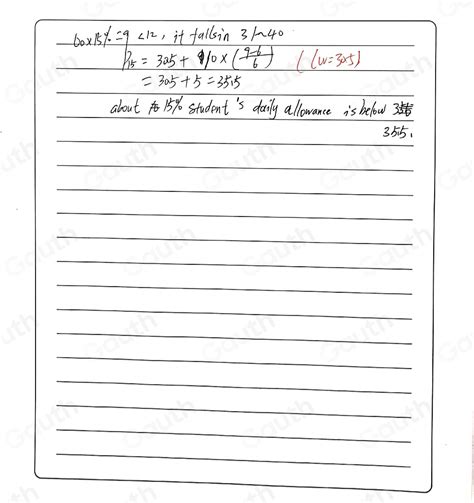 60x15% = 9 <12, it falls in 31~40
P15 = 30.5 + 10 x (9-6/6) (Lw=30.5)
= 30.5 + 5 = 35.5
about 15% student's daily allowance is below
35.5.
Gauth